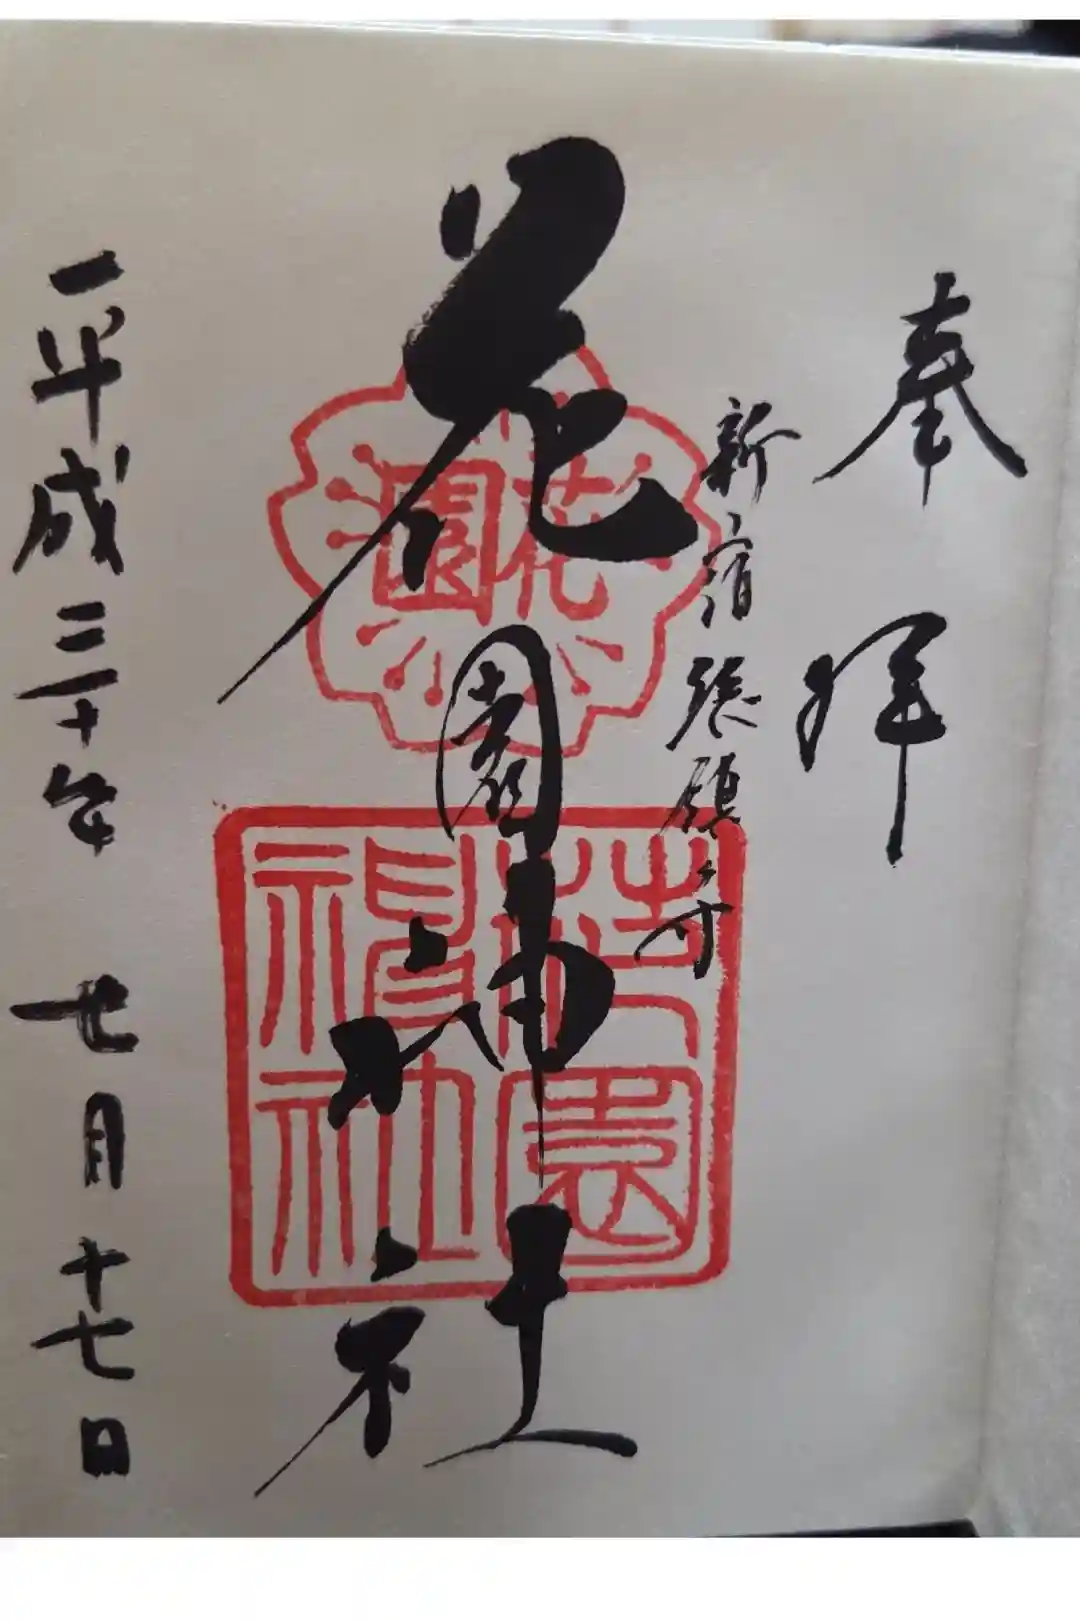 奉拝
新宿総鎮守
花園神社
花園
花園神社
平成三十年 七月 十七日